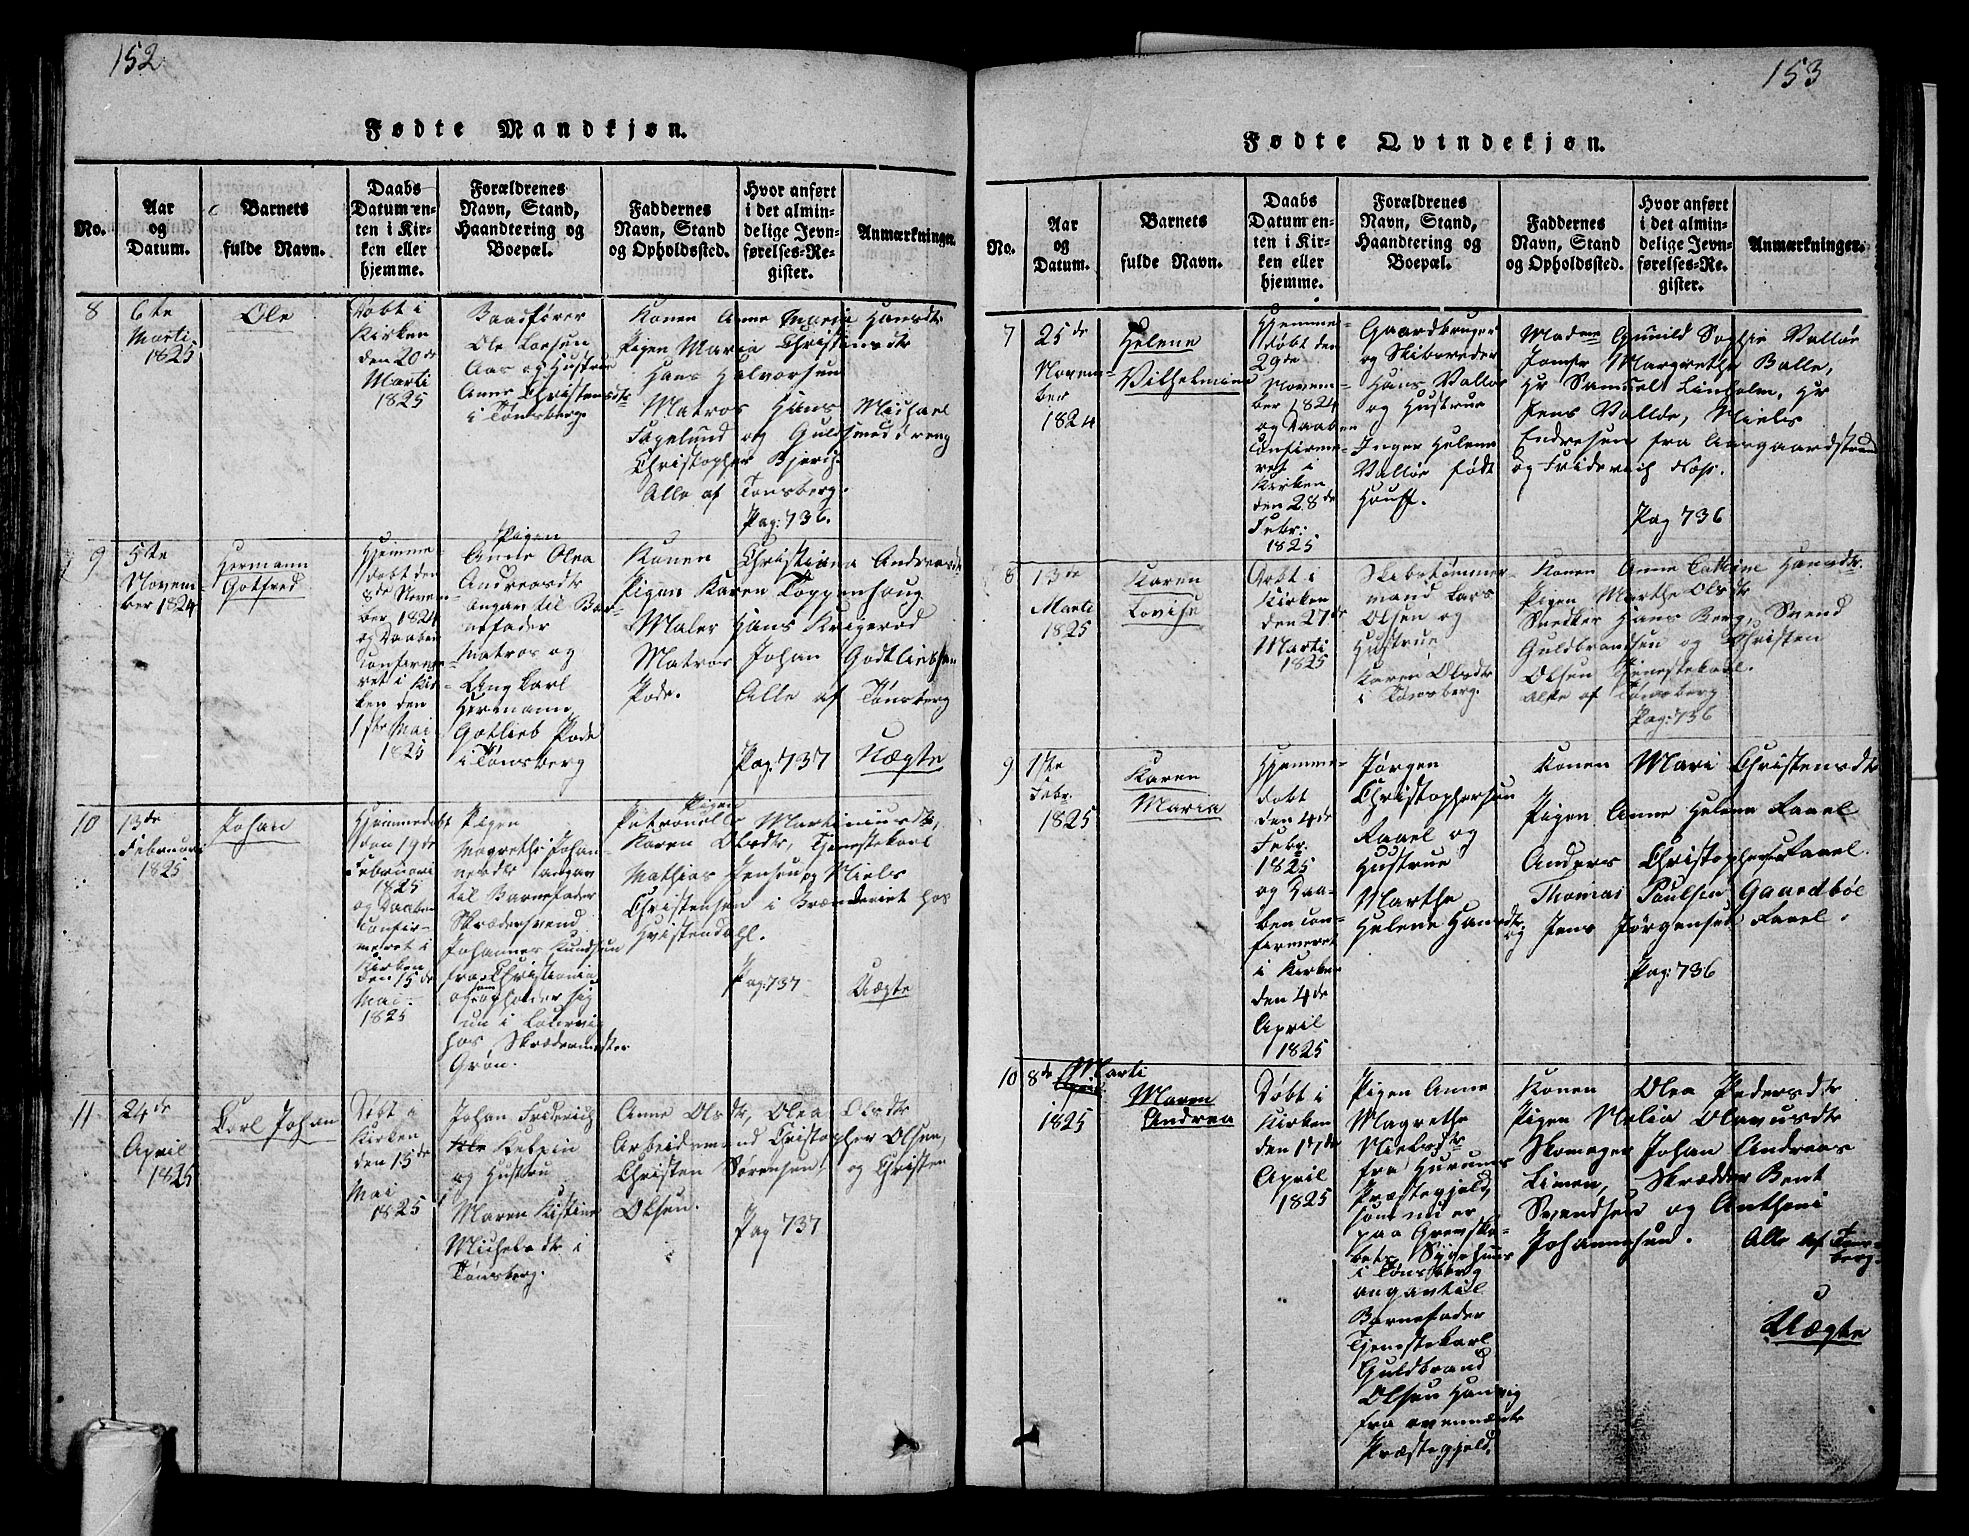 152
Fødte Mandkjøn.
No.
Aar
og
Datum.
Barnets
fulde Navn.
Daabs
Datum en-
ten i Kir-
ken eller
hjemme.
Forældrenes
Navn, Stand,
Haandtering og
Boepæl.
Faddernes
Navn, Stand
og Opholdssted.
Hvor anført
i det almin-
delige Jevn-
førelses-Re-
gister.
Anmærkninger.
8
6te
Marti
1825
Ole
Døbt i
Kirken
den 20de
Marti
1825
Baadfører
Ole Larsen
Aas og Hustrue
Anne Christensdtr
i Tønsberg.
Konen Anne Maria Hansdtr
Pigen Maria Christensdtr
Hans Halvorsen
Matros Hans Michael
Fagelund og Guldsmed
Christopher
Alle af Tønsberg.
Pag: 736.
9
5te
Novem-
ber 1824
Hermann
Gotfred
Hjemme-
døbt den
8de Novem-
ber 1824
og Daaben
Confirme-
ret i Kir-
ken den
1ste Mai
1825
Pigen
Anne Olea
Andreasdtr
angav til Bar-
nefader
Matros og
Ungkarl
Hermann
Gotlieb Pode
i Tønsberg
Konen Christiana Andreasdtr
Pigen Karen Toppenhaug
Maler Hans Krigerød
Matros Johan Godtliebsen
Pode. Alle af Tønsberg
Pag: 737 Uægte
10
13de
Februari
1825
Johan
Hjemmedøbt
den 19de
Februari
1825
og Daaben
Confir-
meret i
Kirken
den 15de
Mai
1825
Pigen
Magrethe Johan-
nesdtr angav
til Barnefader
Skrædersvend
Johannes Knudsen
fra Christiania
og som opholder sig
nu i Laurvig
hos Skrædermester
Grøn.
Pigen
Petronelle Martiniusdtr,
Karen Olsdtr, Tjenestekarl
Mathias Jensen og Niels
Christensen i Brænderiet hos
Hvistendahl.
Pag: 737 Uægte
11
24de
April
1825
Carl Johan
Døbt i
Kirken
den 15de
Mai
1825
Johan Friderich
Kelpin
og Hustru
Maren Kistine
Michelsdtr i
Tønsberg.
Anne Olsdtr, Olea Olsdtr
Arbeidsmand Cristopher Olsen,
Christen Sørensen og Cristen
Olsen.
Pag 737
153
Fødte Qvindekjøn.
No.
Aar
og
Datum.
Barnets
fulde Navn.
Daabs
Datum en-
ten i Kir-
ken eller
hjemme.
Forældrenes
Navn, Stand,
Haandtering og
Boepæl.
Faddernes
Navn, Stand
og Opholdssted.
Hvor anført
i det almin-
delige Jevn-
førelses-Re-
gister.
Anmærkninger.
7
25de
Novem-
ber
1824
Helene
Vilhelmine
Hjemme-
døbt den
29de
Novem-
ber 1824
og Daaben
Confirme-
ret i
Kirken
den 28de
Febr:
1825
Gaardbruger
og Skibsreder
Hans Valløe
og Hustrue
Inger Helene
Valløe født
Hauff.
Madme Gunild Sophie Valløe
Jomfr Margrethe Balle,
Hr Samuel Linholm, Hr
Jens Valløe, Niels
Endresen fra Aasgaardstrand
og Friderich
Pag 736
8
13de
Marti
1825
Karen
Lovise
Døbt i
Kirken
den 27de
Marti
1825
Skibstømmer-
mand Lars
Olsen og
Hustrue
Karen Olsdtr
i Tønsberg.
Konen Anne Cathrine Hansdtr.
Pigen Marthe Olsdtr
Snedker Hans Berg, Svend
Guldbrandsen og Christen
Olsen Tjenestekarl.
Alle af Tønsberg
Pag: 736
9
1ste
Febr.
1825
Karen
Maria
Hjemme-
døbt
den 4de
Febr.
1825
og Daa-
ben con-
firmeret
i Kirken
den 4de
April
1825
Jørgen
Christophersen
Raael og
Hustrue
Marthe
Helene Hansdtr
Konen Mari Christensdtr
Pigen Anne Helene Raael
Anders Christophersen Raael.
Thomas Paulsen Gaardbøe
og Jens Jørgensen Raael.
Pag: 736
10
8de Marti
April
1825
Maren
Andrea
Døbt i
Kirken
den 17de
April
1825
Pigen Anne
Magrethe
Nielsdtr
fra Hurums
Præstegjeld,
som nu er
paa Grevska-
bets Sygehuus
i Tønsberg
angav til
Barnefader
Tjenestekarl
Guldbrand
Olsen
fra ovennævnte
Præstegjeld.
Konen Olea Pedersdtr
Pigen Malia Olavusdtr
Skomager Johan Andreas
Limen, Skrædder Bent
Svendsen og Anthoni
Johannesen. Alle af Tøns-
berg.
Uægte